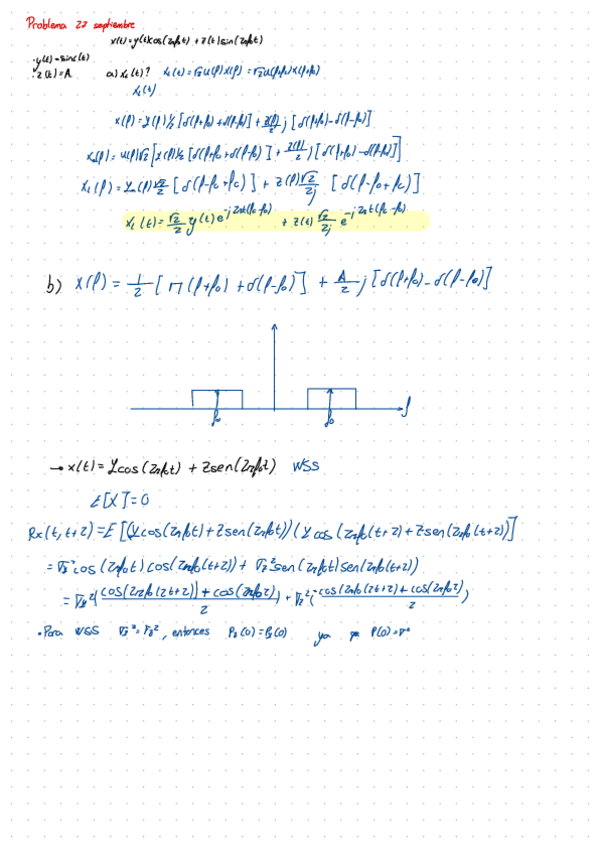 Problema 27 septiembre
x(t)=y(t)cos(2πf₀t) + z(t)sin(2πf₀t)
·y(t)=sinc(t)
·z(t)=A a) x_L(t)? x_L(f)=√2 u(f)x(f) = √2 u(f+f₀)x(f+f₀)
x_L(t)
x(f)=y(f)½[δ(f+f₀)+δ(f-f₀)] + z(f)/2 j[δ(f+f₀)-δ(f-f₀)]
=u(f)√2[y(f)½[δ(f+f₀+δ(f-f₀)] + z(f)/2 j[δ(f+f₀)-δ(f-f₀)]]
x_L(f)= (f)√2/2 [δ(f-f₀+f_c)] + z(f)√2/2j [δ(f-f₀+f_c)]
x_L(t)= √2/2 y(t)e^{-j2πt(f_c-f₀)} + z(t) √2/2j e^{-j2πt(f_c-f₀)}
b) x(f) = 1/2 [⊓(f+f₀)+δ(f-f₀)] + A/2 j[δ(f+f₀)-δ(f-f₀)]
f
f₀ f₀
→ x(t)= Ycos(2πf₀t) + Zsen(2πf₀t) WSS
E[X]=0
Rx(t,t+τ)=E[(Ycos(2πf₀t)+Zsen(2πf₀t))(Ycos(2πf₀(t+τ)+Zsen(2πf₀(t+τ))]
= σ_y²cos(2πf₀t)cos(2πf₀(t+τ))+ σ_z²sen(2πf₀t)sen(2πf₀(t+τ))
= σ_y²(cos(2πf₀(2t+τ))+cos(2πf₀τ)/2) + σ_z²(-cos(2πf₀(2t+τ)+cos(2πf₀τ)/2)
·Para WSS σ_y²=σ_z², entonces R_y(0)=R_z(0) ya que R(0)=σ²